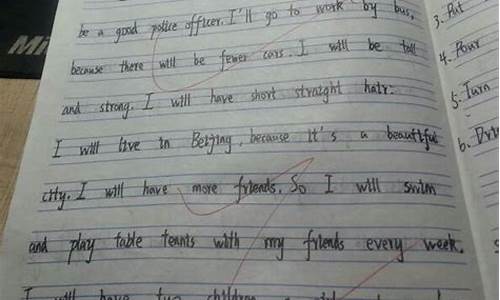 be a good police officer. I'll go to work by bus,
because there will be fewer cars. I will be tall
and strong. I will have short straight hair.
I will live in Beijing, because it's a beautiful
city. I will have more friends. So I will swim
and play table tennis with my friends every week.
I will have two children
3. Put
4. Pour
5. Turn
6.
Mi